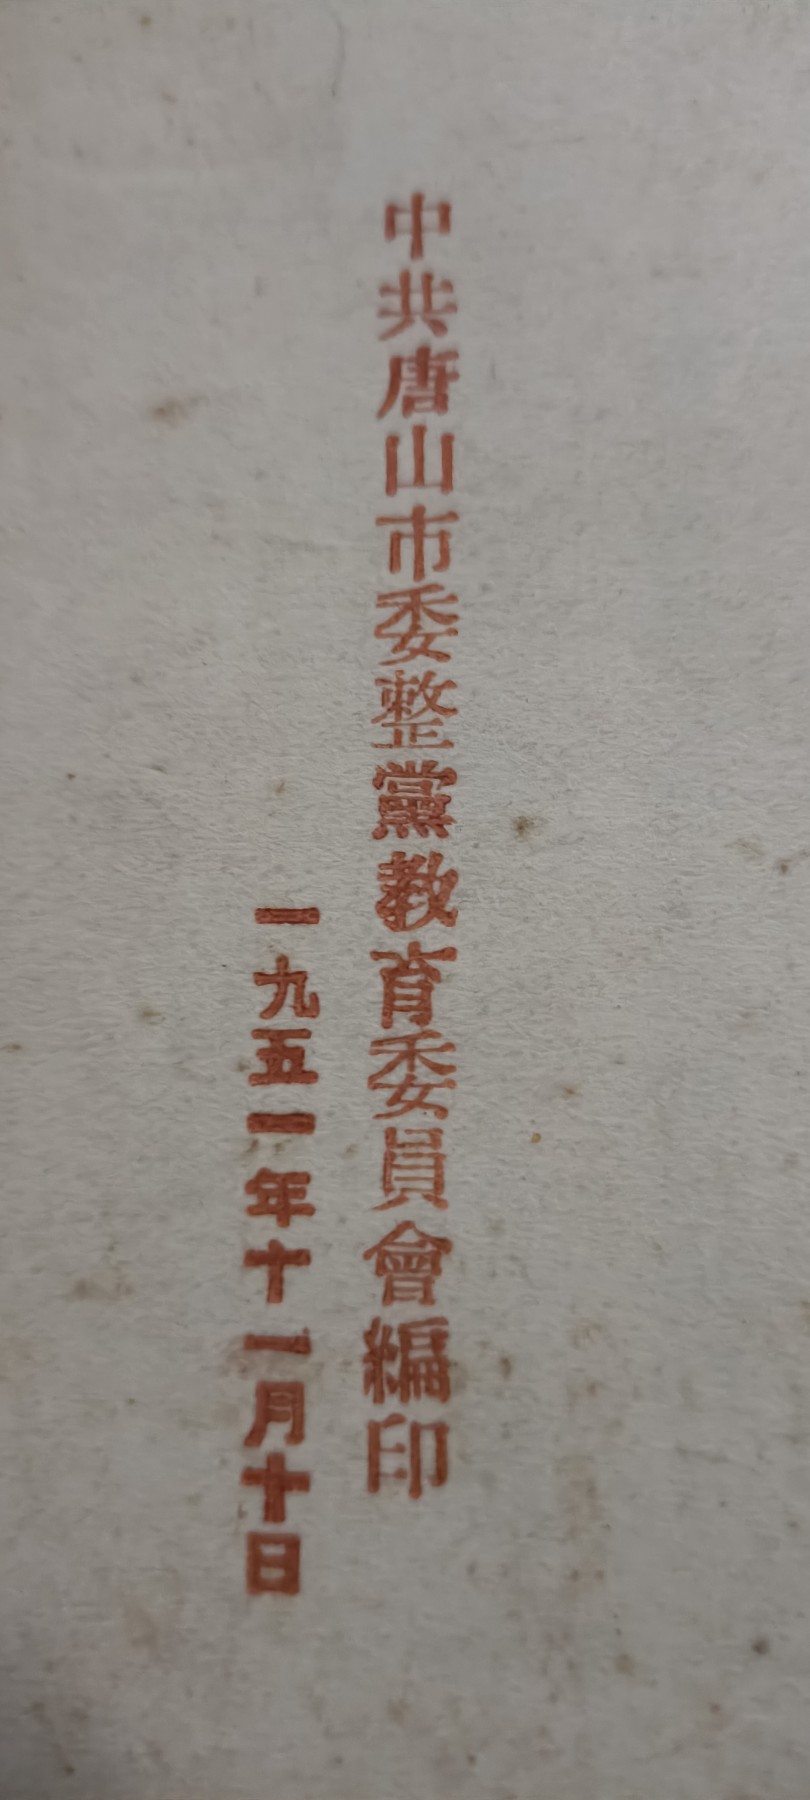 中共唐山市委整黨教育委員會編印
一九五一年十一月十日